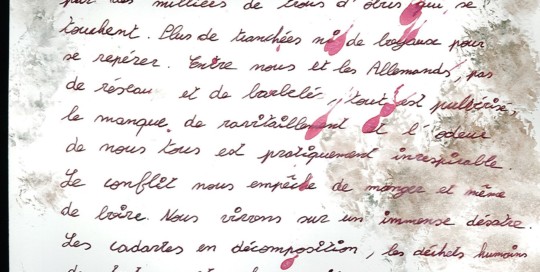 par des milliers de trous d'obus qui se
touchent. Plus de tranchées ni de boyaux pour
se repérer. Entre nous et les Allemands, pas
de réseau et de barbelé, tout est pulvérisé,
le manque de ravitaillement et l'odeur
de nous tous est pratiquement irrespirable.
Le conflit nous empêche de manger et même
de boire. Nous vivons sur un immense désatre.
Les cadavres en décomposition, les déchets humains